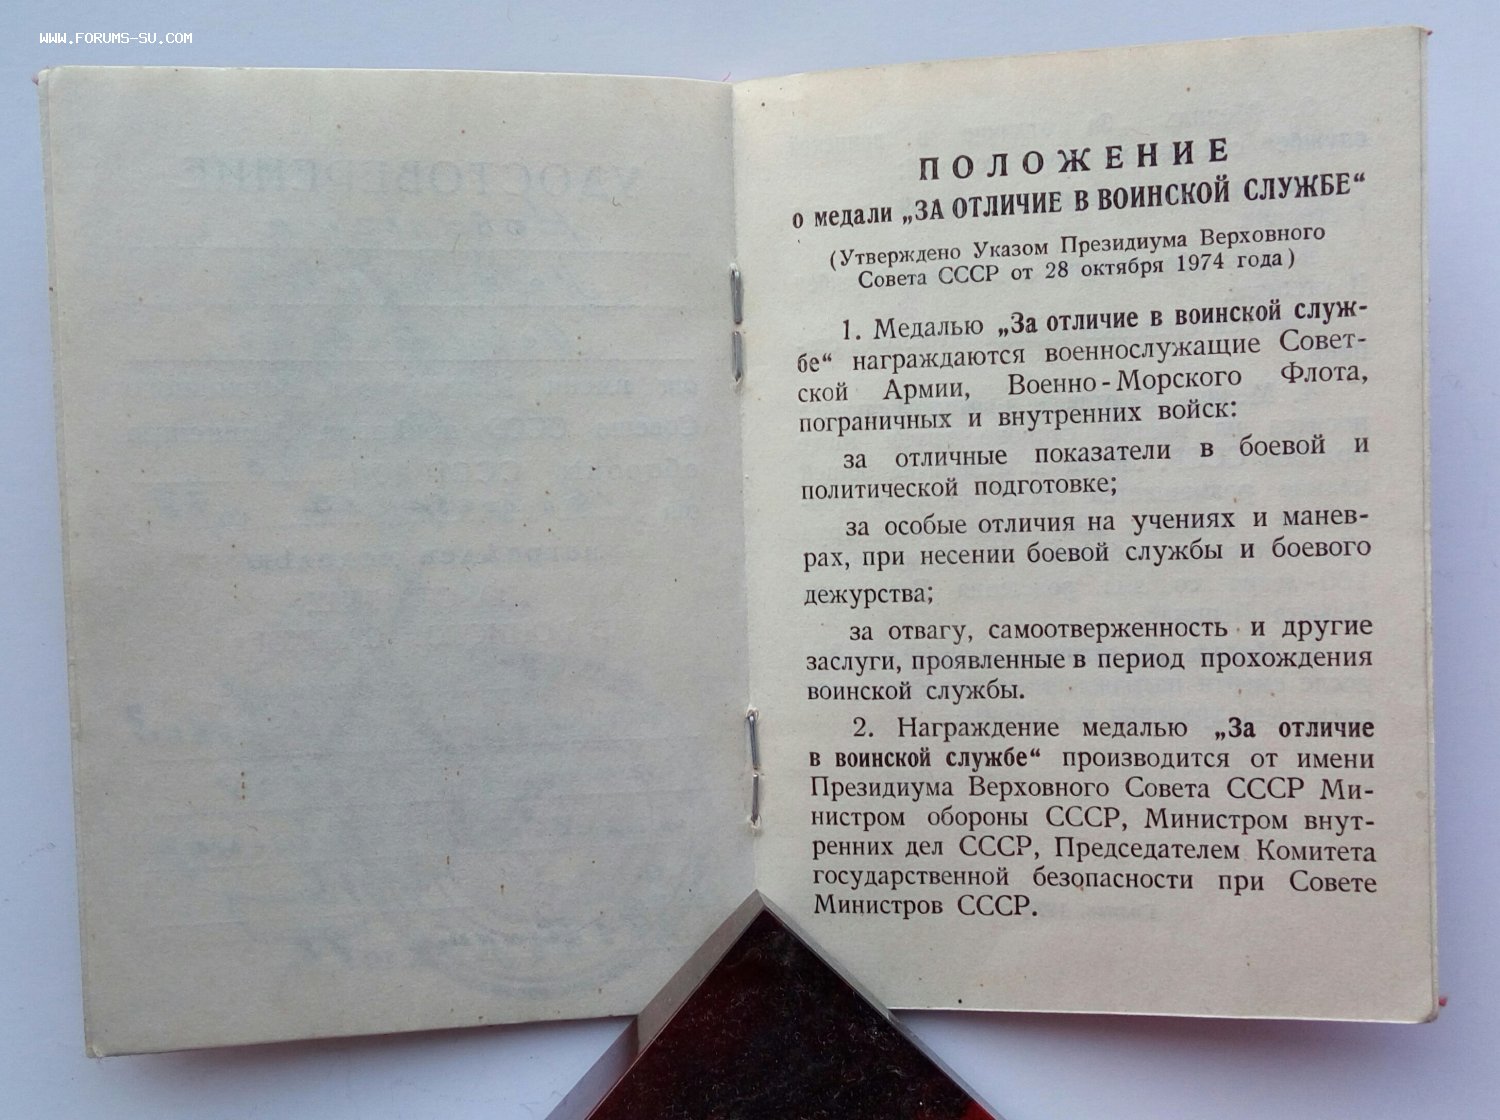 WWW.FORUMS-SU.COM
ПОЛОЖЕНИЕ
о медали „ЗА ОТЛИЧИЕ В ВОИНСКОЙ СЛУЖБЕ“
(Утверждено Указом Президиума Верховного
Совета СССР от 28 октября 1974 года)
1. Медалью „За отличие в воинской служ-
бе“ награждаются военнослужащие Совет-
ской Армии, Военно-Морского Флота,
пограничных и внутренних войск:
за отличные показатели в боевой и
политической подготовке;
за особые отличия на учениях и манев-
рах, при несении боевой службы и боевого
дежурства;
за отвагу, самоотверженность и другие
заслуги, проявленные в период прохождения
воинской службы.
2. Награждение медалью „За отличие
в воинской службе“ производится от имени
Президиума Верховного Совета СССР Ми-
нистром обороны СССР, Министром внут-
ренних дел СССР, Председателем Комитета
государственной безопасности при Совете
Министров СССР.